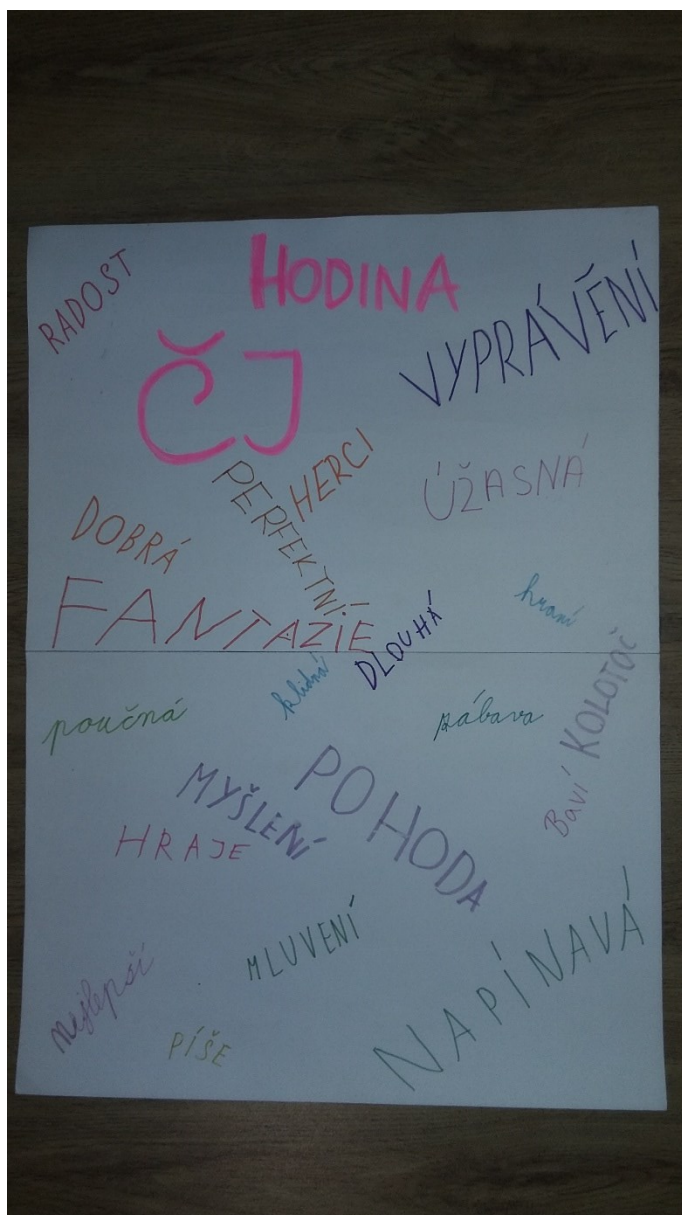 RADOST
HODINA
ČJ
VYPRÁVĚNÍ
HERCI
PERFEKTNÍ
ÚŽASNÁ
DOBRÁ
FANTAZIE
hraní
DLOUHÁ
klidná
poučná
zábava
KOLOTOČ
Baví
MYŠLENÍ
POHODA
HRAJE
MLUVENÍ
NAPÍNAVÁ
nejlepší
PÍŠE